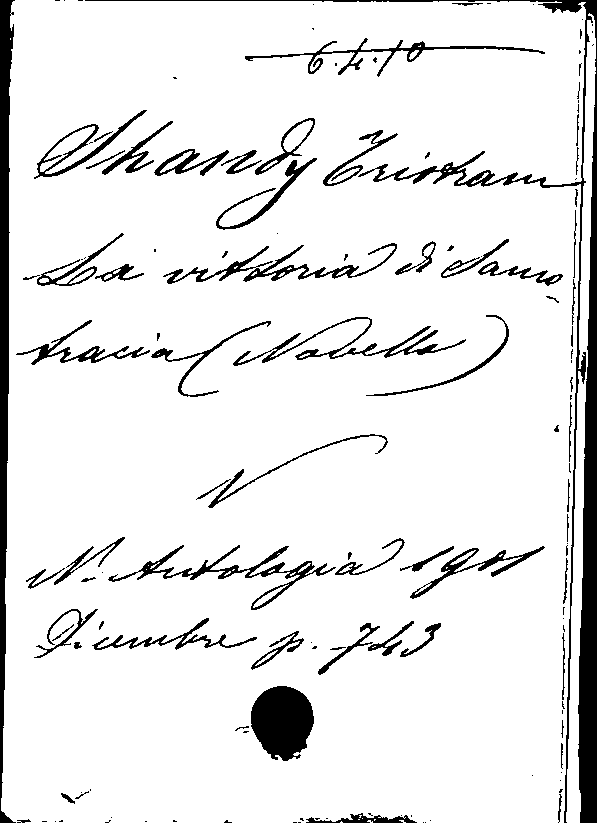 6.4.10
Shandy Tristram
La vittoria di Samo-
tracia (Novella)
V
Nª Antologia 1901
Dicembre p. 743